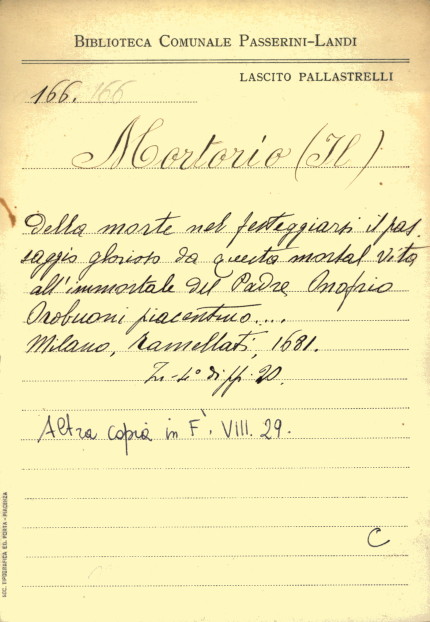 BIBLIOTECA COMUNALE PASSERINI-LANDI
LASCITO PALLASTRELLI
166. 166
Mortorio (Il)
Della morte nel festeggiarsi il pas-
saggio glorioso da questa mortal vita
all'immortale del Padre Onofrio
Orobuoni piacentino....
Milano, Ramellati, 1681.
In-4° di ff. 20.
Altra copia in F. VIII. 29.
C
SOC. TIPOGRAFICA ED. PORTA - PIACENZA